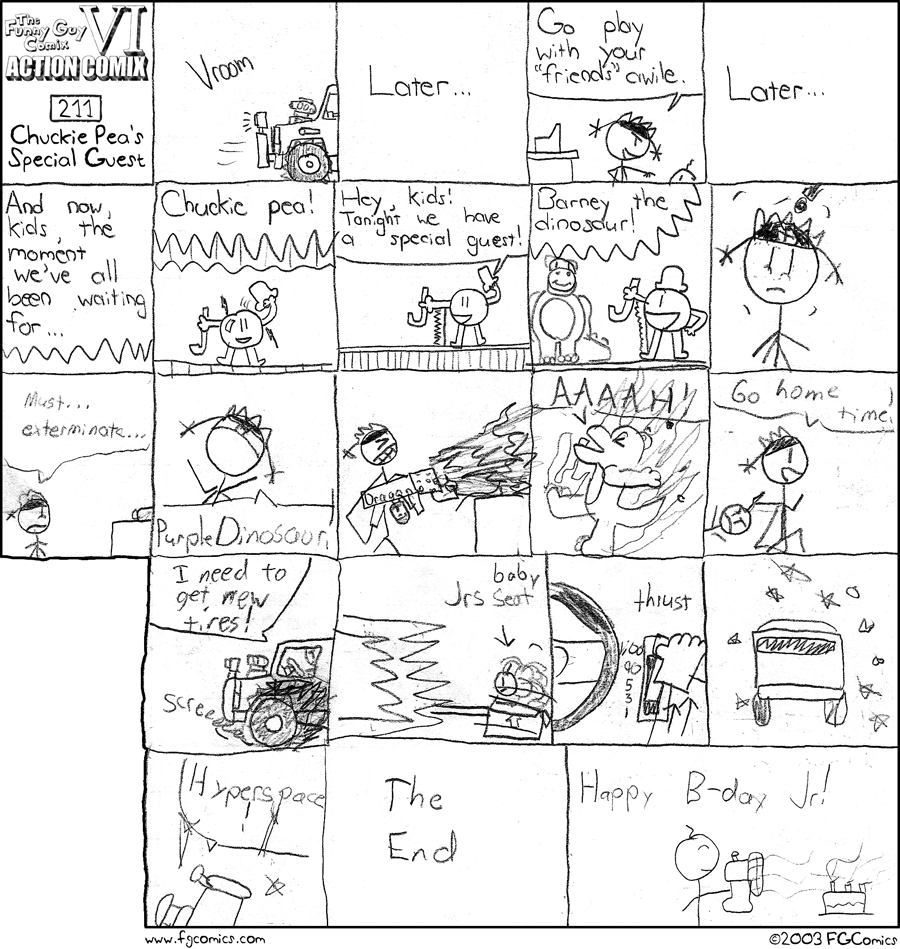 The
Funny Guy
Comix
VI
ACTION COMIX
211
Chuckie Pea's
Special Guest
Vroom
Later...
Go play
with your
"friends" awile.
Later...
And now,
kids, the
moment
we've all
been waiting
for...
Chuckie pea!
Hey, kids!
Tonight we have
a special guest!
Barney the
dinosaur!
Must...
exterminate...
Purple Dinosaur!
Dragon
AAAAH!
Go home
time!
I need to
get new
tires!
Screee
baby
Jrs seat
Jr
thrust
100
90
5
3
1
Hyperspace
!
The
End
Happy B-day Jr!
www.fgcomics.com
©2003 FGComics